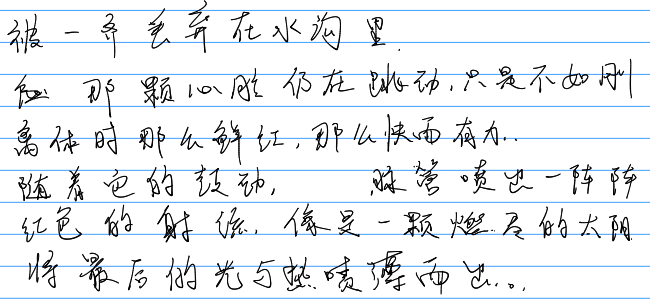 被一齐丢弃在水沟里.
那颗心脏仍在跳动.只是不如刚
离体时那么鲜红,那么快而有力..
随着它的鼓动, 脉管喷出一阵阵
红色的射流.像是一颗燃尽的太阳
将最后的光与热喷薄而出...